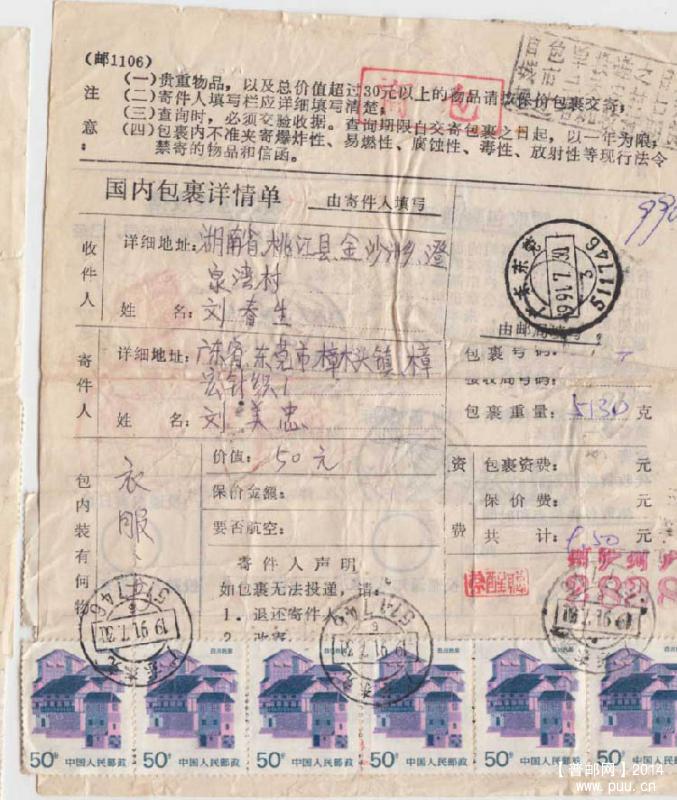 (邮1106)
注意:
(一)贵重物品,以及总价值超过30元以上的物品请按保价包裹交寄;
(二)寄件人填写栏应详细填写清楚;
(三)查询时,必须交验收据。查询期限自交寄包裹之日起,以一年为限;
(四)包裹内不准夹寄爆炸性、易燃性、腐蚀性、毒性、放射性等现行法令
禁寄的物品和信函。
国内包裹详情单 由寄件人填写
990
收件人
详细地址: 湖南省,桃江县金沙洲乡,澄
泉湾村
姓 名: 刘春生
511746
由邮局填写
寄件人
详细地址: 广东省,东莞市樟木头镇,樟
宏针织厂
姓 名: 刘美忠
包裹号码:
接收局号码:
包裹重量: 5130 克
包内装有何物
衣服
价值: 50元
保价金额:
要否航空:
资费
包裹资费: 元
保价费: 元
共计: 元
寄件人声明
如包裹无法投递,请:
1.退还寄件人
511746
19 91.7.30
50分 中国人民邮政
50分 中国人民邮政
50分 中国人民邮政
50分 中国人民邮政
50分 中国人民邮政
50分 中国人民
【普邮网】2014
www.puu.cn